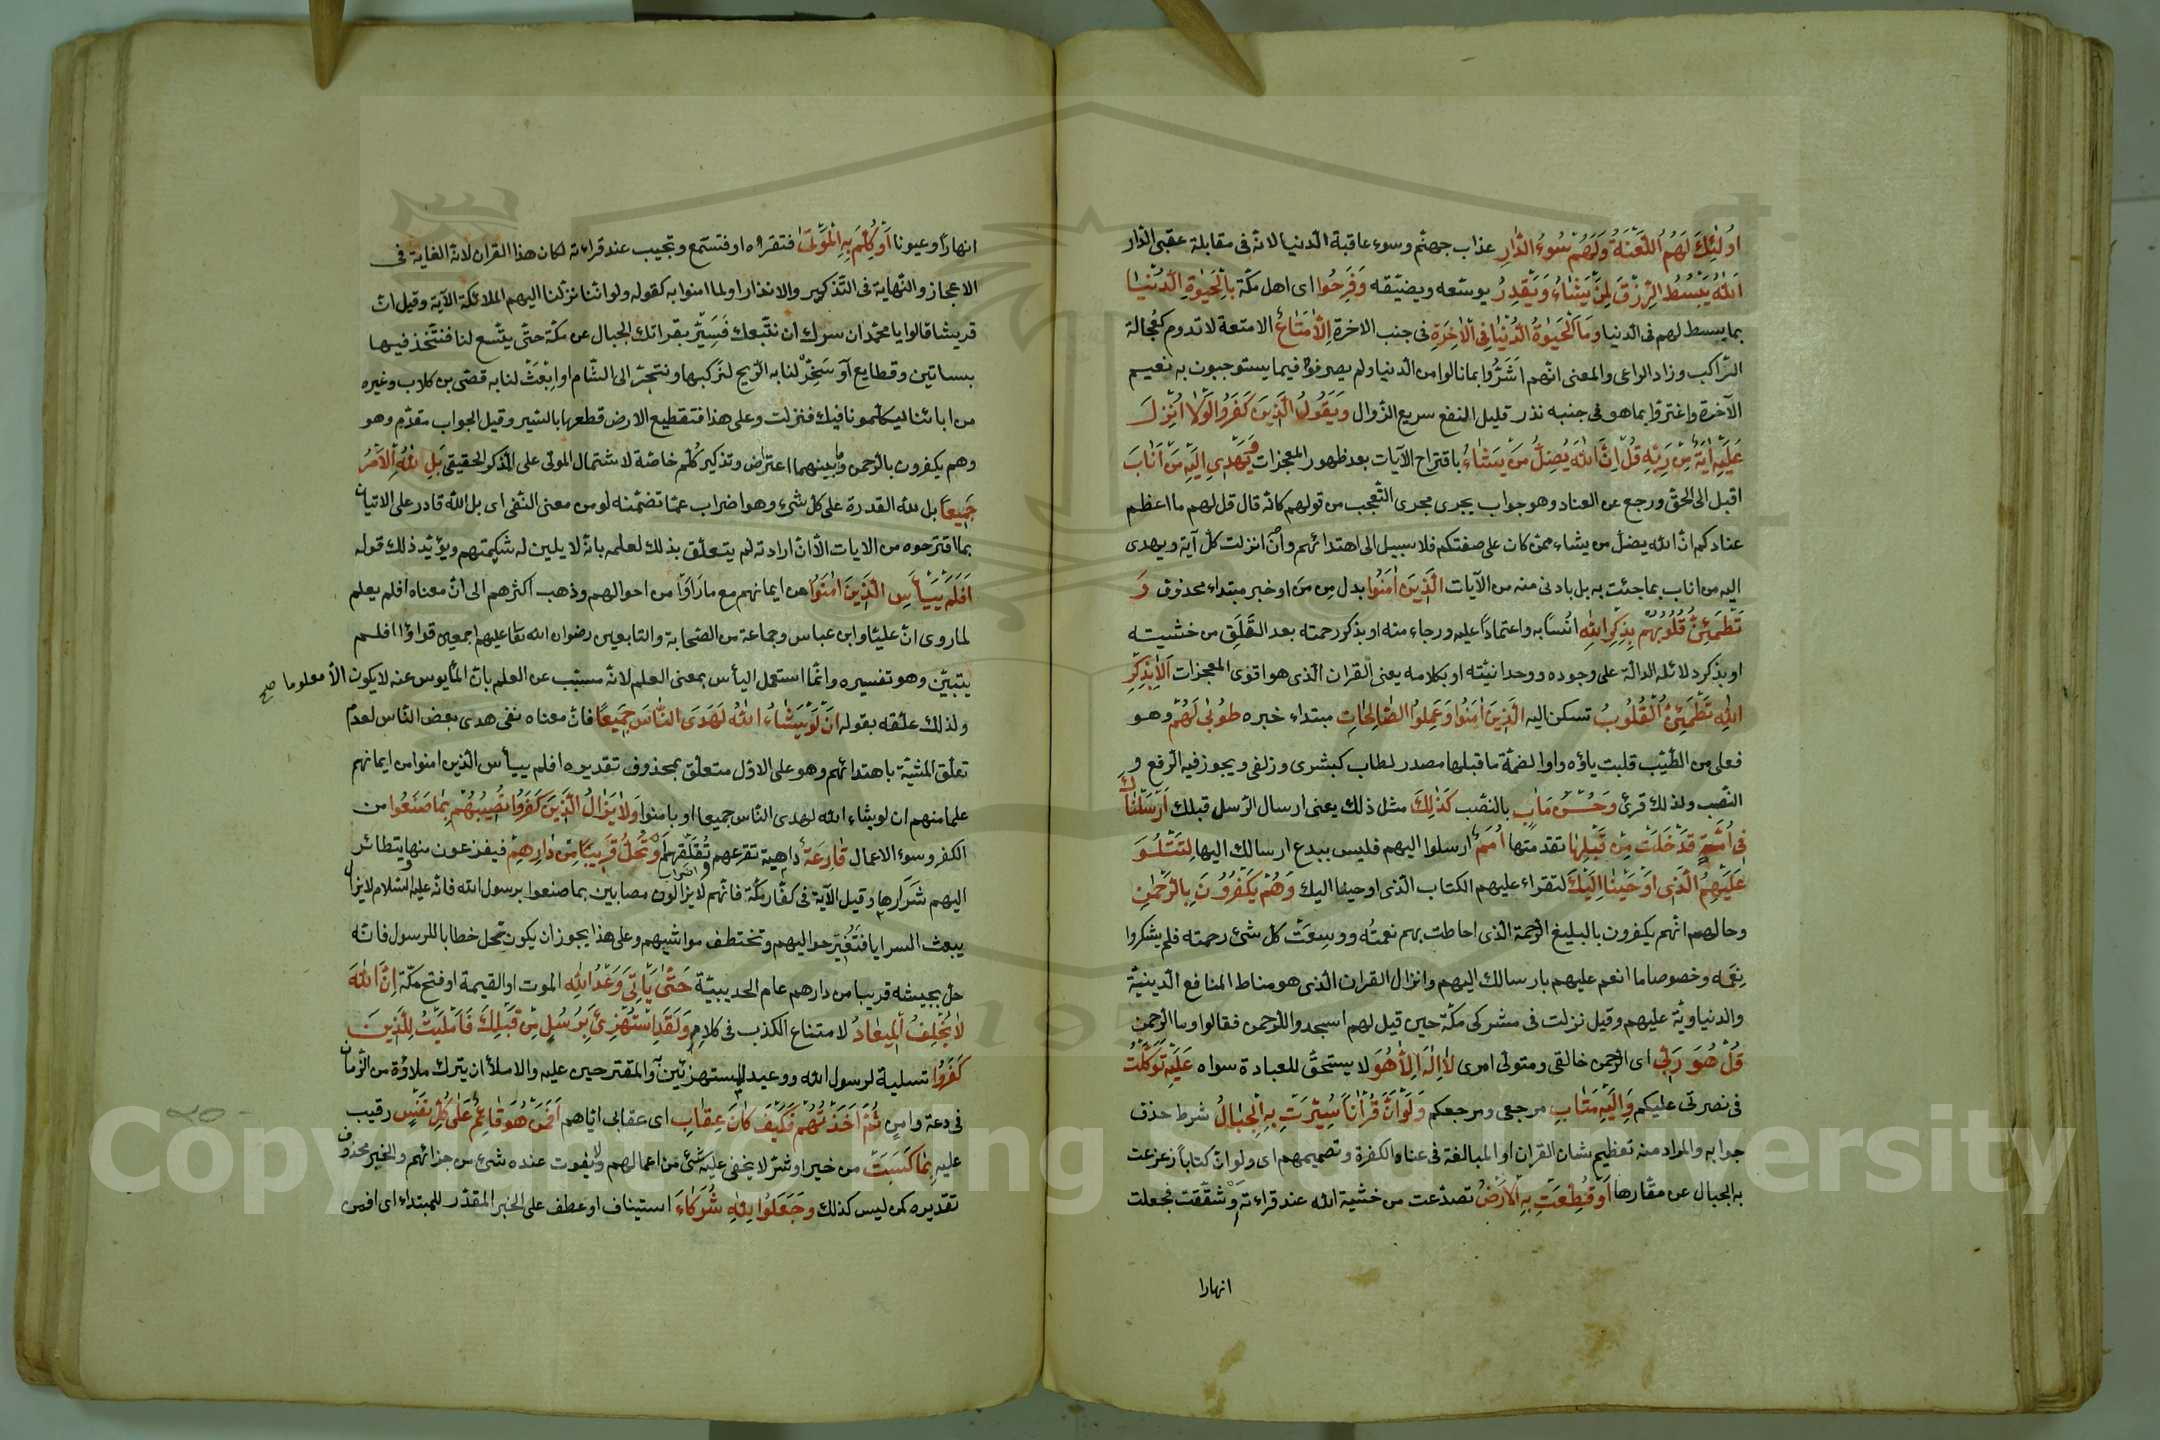 اُولٰئِكَ لَهُمُ اللَّعْنَةُ وَلَهُمْ سُوءُ الدَّارِ عذاب جهنّم وسوء عاقبة الدّنيا لانّه فى مقابلة عقبى الدّار
اَللّٰهُ يَبْسُطُ الرِّزْقَ لِمَنْ يَشَاءُ وَيَقْدِرُ يوسّعه ويضيّقه وَفَرِحُوا اى اهل مكّة بِالْحَيٰوةِ الدُّنْيَا
بما يبسط لهم فى الدنيا وَمَا الْحَيٰوةُ الدُّنْيَا فِى الْاٰخِرَةِ فى جنب الاخرة اِلَّا مَتَاعٌ الا متعة لا تدوم كعُجالة
الرّاكب وزاد الراعى والمعنى انّهم اَشَرُوا بما نالوا من الدنيا ولم يصرفوا فيما يستوجبون به نعيم
الآخرة واغترّوا بما هو فى جنبه نذر قليل النفع سريع الزّوال وَيَقُولُ الَّذِينَ كَفَرُوا لَوْلَا اُنْزِلَ
عَلَيْهِ اٰيَةٌ مِنْ رَبِّهِ قُلْ اِنَّ اللّٰهَ يُضِلُّ مَنْ يَشَاءُ باقتراح الآيات بعد ظهور المعجزات وَيَهْدِى اِلَيْهِ مَنْ اَنَابَ
اقبل الى الحقّ ورجع عن العناد وهو جواب يجرى مجرى التّعجب من قولهم كانّه قال قل لهم ما اعظم
عنادكم انّ الله يضلّ من يشاء ممّن كان على صفتكم فلا سبيل الى اهتدائهم وانْ انزلت كلّ آية ويهدى
اليه من اناب بما جئت به بل بادنى منه من الآيات الَّذِينَ اٰمَنُوا بدل من مَن او خبر مبتداء محذوف وَ
تَطْمَئِنُّ قُلُوبُهُمْ بِذِكْرِ اللّٰهِ انُسًا به واعتماداً عليه ورجاء منه او بذكر رحمته بعد القَلَق من خشيته
او بذكر دلائله الدالّة على وجوده ووحدانيّته او بكلامه يعنى القران الّذى هو اقوى المعجزات اَلَا بِذِكْرِ
اللّٰهِ تَطْمَئِنُّ الْقُلُوبُ تسكن اليه الَّذِينَ اٰمَنُوا وَعَمِلُوا الصَّالِحَاتِ مبتداء خبره طُوبٰى لَهُمْ وهو
فعلى من الطّيب قلبت ياؤه واوا لضمّة ما قبلها مصدر لطاب كبشرى وزلفى ويجوز فيه الرّفع و
النّصب ولذلك قرئ وَحُسْنُ مَاٰبٍ بالنصب كَذٰلِكَ مثل ذلك يعنى ارسال الرّسل قبلك اَرْسَلْنَاكَ
فِى اُمَّةٍ قَدْ خَلَتْ مِنْ قَبْلِهَا تقدمتها اُمَمٌ ارسلوا اليهم فليس ببدع ارسالك اليها لِتَتْلُوَ
عَلَيْهِمُ الَّذِى اَوْحَيْنَا اِلَيْكَ لتقراء عليهم الكتاب الّذى اوحيناه اليك وَهُمْ يَكْفُرُونَ بِالرَّحْمٰنِ
وحالهم انّهم يكفرون بالبليغ الرّحمة الّذى احاطت بهم نعمتُه ووسِعَت كلّ شئ رحمته فلم يشكروا
نِعَمَه وخصوصا ما انعم عليهم بارسالك اليهم وانزال القران الّذى هو مناط المنافع الدّينيّة
والدنياويّة عليهم وقيل نزلت فى مشركى مكّة حين قيل لهم اسجدوا للرّحمن فقالوا وما الرّحمن
قُلْ هُوَ رَبِّى اى الرّحمن خالقى ومتولّى امرى لَا اِلٰهَ اِلَّا هُوَ لا يستحقّ للعبادة سواه عَلَيْهِ تَوَكَّلْتُ
فى نصرتى عليكم وَاِلَيْهِ مَتَابِ مرجعى ومرجعكم وَلَوْ اَنَّ قُرْاٰناً سُيِّرَتْ بِهِ الْجِبَالُ شرط حذف
جوابه والمراد منه تعظيم شان القران او المبالغة فى عناد الكفرة وتصميمهم اى ولو انّ كتاباً زعزعت
به الجبال عن مقارها اَوْ قُطِّعَتْ بِهِ الْاَرْضُ تصدّعت من خشية الله عند قراءته وشقّقت فجعلت
انهارا
انهاراً وعيونا اَوْ كُلِّمَ بِهِ الْمَوْتٰى فتقرؤه او فتستمع وتجيب عند قراءته لكان هذا القران لانّه الغاية فى
الاعجاز والنّهاية فى التّذكير والانذار او لما امنوا به كقوله ولو انّنا نزّلنا اليهم الملائكة الآية وقيل انّ
قريشا قالوا يا محمّد ان سرك ان نتّبعك فَسَيِّر بقرانك الجبال عن مكّة حتّى يتّسع لنا فنتّخذ فيها
بساتين وقطايع اَو سَخِّر لنا به الرّيح لنركبها ونتجر الى الشّام او ابعث لنا به قصّى بن كلاب وغيره
من ابائنا ليكلّمونا فيك فنزلت وعلى هذا فتقطيع الارض قطعها بالسّير وقيل الجواب مقدّم وهو
وهم يكفرون بالرّحمن وما بينهما اعتراض وتذكير كُلّم خاصّة لاشتمال الموتى على المذكر الحقيقى بَلْ لِلّٰهِ الْاَمْرُ
جَمِيعًا بل لله القدرة على كلّ شئ وهو اضراب عمّا تضمّنه لو من معنى النّفى اى بل الله قادر على الاتيان
بما اقترحوه من الايات الّا انّ ارادته لم يتعلّق بذلك لعلمه بانّه لا يلين له شكيمتهم ويؤيّد ذلك قوله
اَفَلَمْ يَيْأَسِ الَّذِينَ اٰمَنُوا من ايمانهم مع ما رَاَوْا من احوالهم وذهب اكثرهم الى انّ معناه افلم يعلم
لما روى انّ عليّا وابن عباس وجماعة من الصّحابة والتابعين رضوان الله تعا عليهم اجمعين قراؤا افلم
يتبيّن وهو تفسيره وانّما استعمل اليأس بمعنى العلم لانّه مسبّب عن العلم بانّ المأيوس عنه لا يكون الّا معلوما صح
ولذلك علّقه بقوله اَنْ لَوْ يَشَاءُ اللّٰهُ لَهَدَى النَّاسَ جَمِيعًا فانّ معناه نفى هدى بعض النّاس لعدم
تعلّق المشيّة باهتدائهم وهو على الاوّل متعلّق بمحذوف تقديره افلم ييأس الّذين امنوا من ايمانهم
علما منهم ان لو يشاء الله لهدى النّاس جميعا او بامنوا وَلَا يَزَالُ الَّذِينَ كَفَرُوا تُصِيبُهُمْ بِمَا صَنَعُوا من
الكفر وسوء الاعمال قَارِعَةٌ داهية تقرعهم وتُقَلِّقهم اَوْ تَحُلُّ قَرِيبًا مِنْ دَارِهِمْ فيفزعون منها يتطائر
اليهم شَرَرُها وقيل الآية فى كفّار مكّة فانّهم لا يزالون مصابين بما صنعوا برسول الله فانّه عليه السّلام لا يزال
يبعث السرايا فتُغير حواليهم وتختطف مواشيهم وعلى هذا يجوز ان يكون تحل خطابا للرسول فانّه
حلّ بجيشه قريبا من دارهم عام الحديبيّة حَتّٰى يَأْتِىَ وَعْدُ اللّٰهِ الموت او القيمة او فتح مكّة اِنَّ اللّٰهَ
لَا يُخْلِفُ الْمِيعَادَ لامتناع الكذب فى كلامه وَلَقَدِ اسْتُهْزِئَ بِرُسُلٍ مِنْ قَبْلِكَ فَاَمْلَيْتُ لِلَّذِينَ
كَفَرُوا تسلية لرسول الله ووعيد للمستهزئين به والمقترحين عليه والاملأ ان يترك ملاوَة من الزّمان
فى دعة وامن ثُمَّ اَخَذْتُهُمْ فَكَيْفَ كَانَ عِقَابِ اى عقابى ايّاهم اَفَمَنْ هُوَ قَائِمٌ عَلٰى كُلِّ نَفْسٍ رقيب
عليه بِمَا كَسَبَتْ من خير او شرّ لا يخفى عليه شئ من اعمالهم ولا يفوت عنده شئ من جزائهم والخبر محذوف
تقديره كمن ليس كذلك وَجَعَلُوا لِلّٰهِ شُرَكَاءَ استيناف او عطف على الخبر المقدّر للمبتداء اى افمن
Copyright © King Saud University
1957